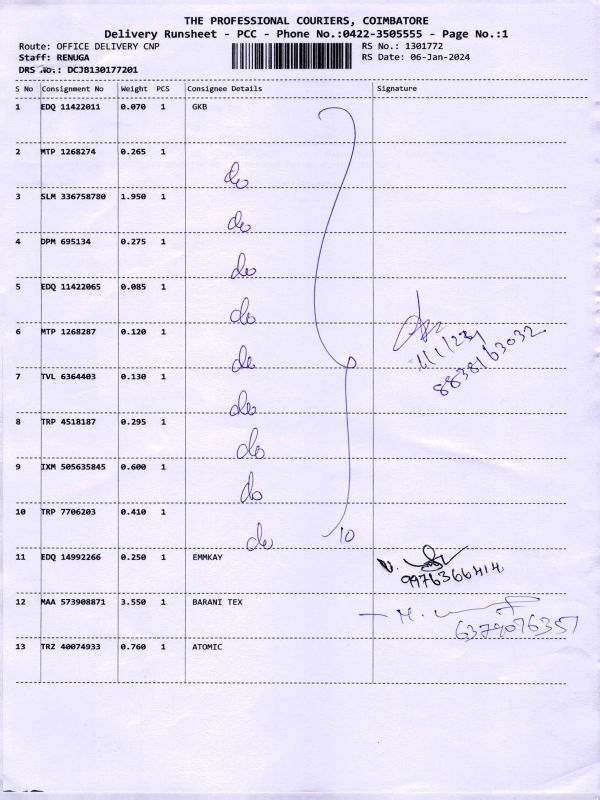 THE PROFESSIONAL COURIERS, COIMBATORE
Delivery Runsheet - PCC - Phone No.:0422-3505555 - Page No.:1
Route: OFFICE DELIVERY CNP RS No.: 1301772
Staff: RENUGA RS Date: 06-Jan-2024
DRS No.: DCJB130177201
S No Consignment No Weight PCS Consignee Details Signature
1 EDQ 11422011 0.070 1 GKB
2 MTP 1268274 0.265 1
do
3 SLM 336758780 1.950 1
do
4 DPM 695134 0.275 1
do
5 EDQ 11422065 0.085 1
do
6 MTP 1268287 0.120 1
do
8838163032
7 TVL 6364403 0.130 1
do
8 TRP 4518187 0.295 1
do
9 IXM 505635845 0.600 1
do
10 TRP 7706203 0.410 1
do 10
11 EDQ 14992266 0.250 1 EMMKAY
9976366414
12 MAA 573908871 3.550 1 BARANI TEX
6379076357
13 TRZ 40074933 0.760 1 ATOMIC